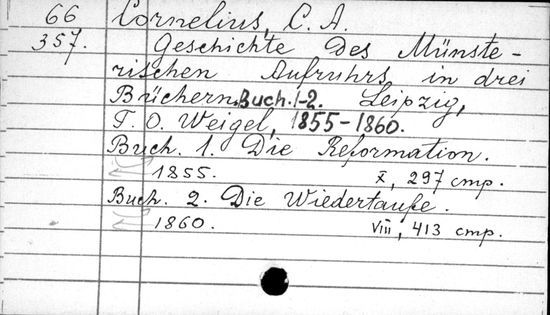 66 Cornelius, C. A.
357. Geschichte des Münste-
rischen Aufruhrs in drei
Büchern. Buch. 1-2. Leipzig,
T. O. Weigel, 1855-1860.
Buch. 1. Die Reformation.
1855. X, 297 стр.
Buch. 2. Die Wiedertaufe.
1860. VIII, 413 стр.